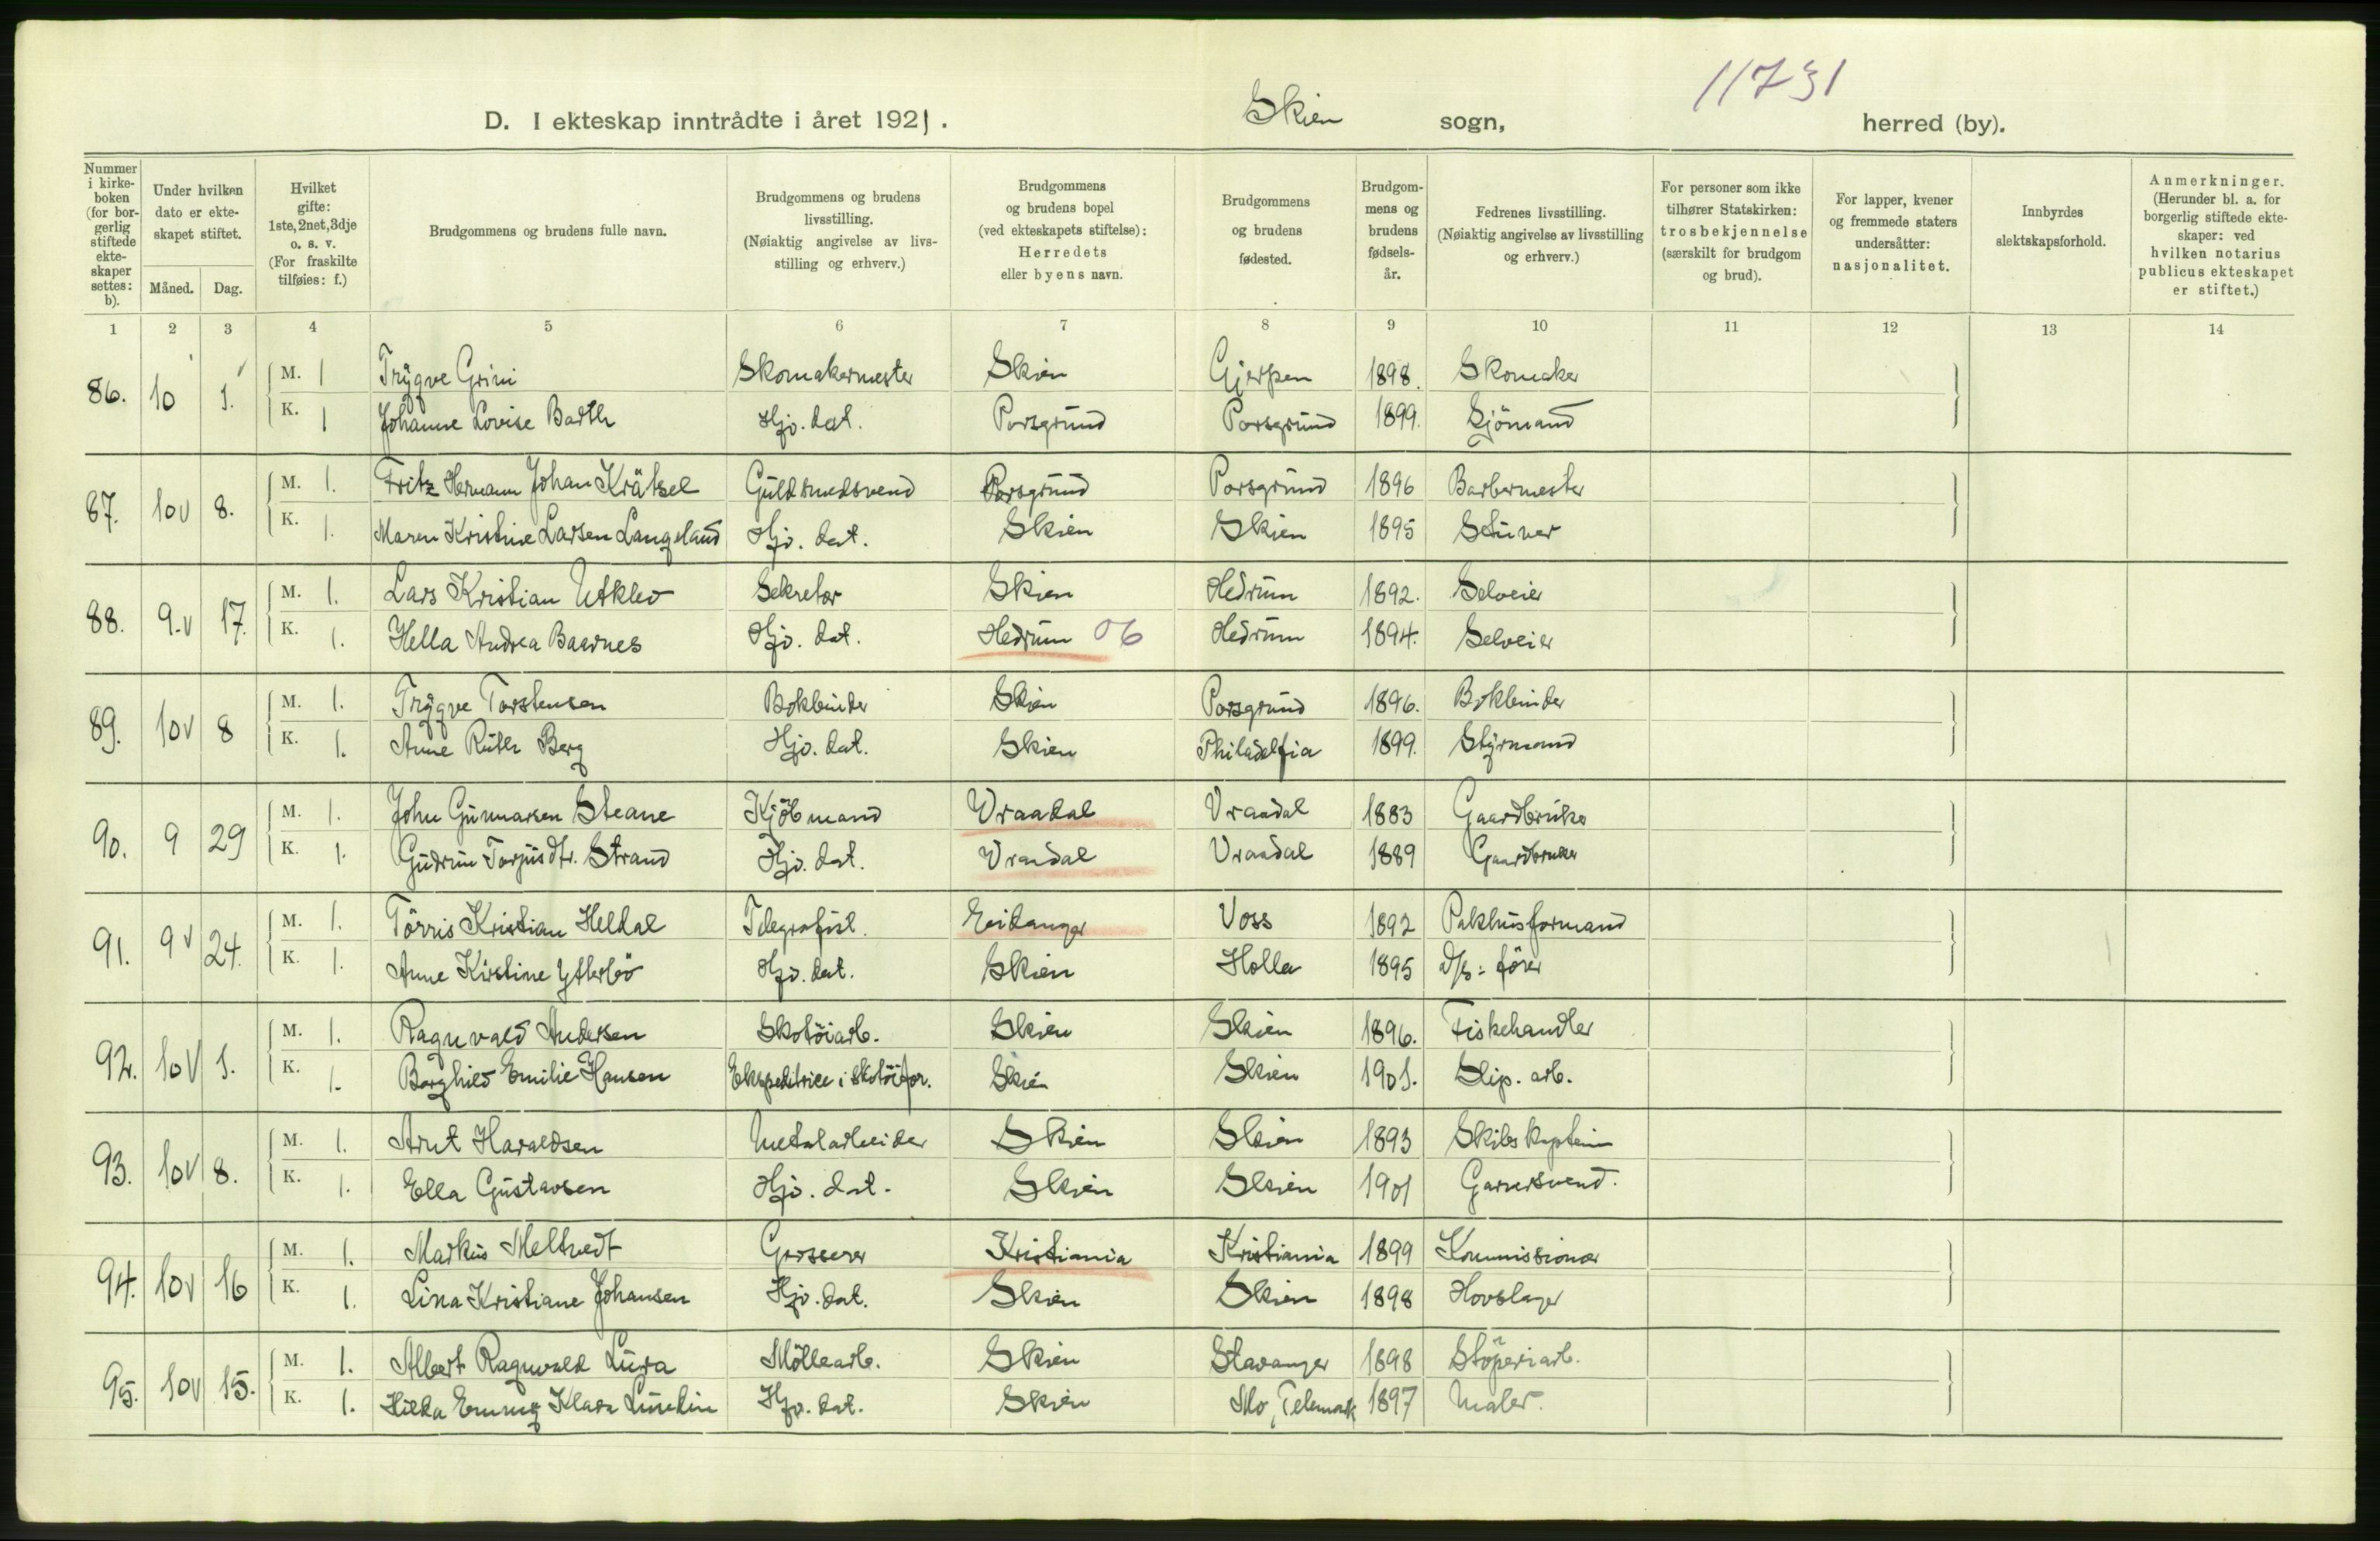 11731
D. I ekteskap inntrådte i året 1921. Skien sogn, herred (by).
Nummer i kirkeboken (for borgerlig stiftede ekteskaper settes: b).
Under hvilken dato er ekteskapet stiftet.
Måned. Dag.
Hvilket gifte: 1ste, 2net, 3dje o. s. v. (For fraskilte tilføies: f.)
Brudgommens og brudens fulle navn.
Brudgommens og brudens livsstilling. (Nøiaktig angivelse av livsstilling og erhverv.)
Brudgommens og brudens bopel (ved ekteskapets stiftelse): Herredets eller byens navn.
Brudgommens og brudens fødested.
Brudgommens og brudens fødselsår.
Fedrenes livsstilling. (Nøiaktig angivelse av livsstilling og erhverv.)
For personer som ikke tilhører Statskirken: trosbekjennelse (særskilt for brudgom og brud).
For lapper, kvener og fremmede staters undersåtter: nasjonalitet.
Innbyrdes slektskapsforhold.
Anmerkninger. (Herunder bl. a. for borgerlig stiftede ekteskaper: ved hvilken notarius publicus ekteskapet er stiftet.)
1 2 3 4 5 6 7 8 9 10 11 12 13 14
86. 10 1. M. 1 Trygve Grini Skomakermester Skien Gjerpen 1898. Skomaker
K. 1 Johanne Lovise Barth Hjv. dat. Porsgrund Porsgrund 1899. Sjömand
87. 10 8. M. 1. Fritz Hermann Johan Krätsel Guldsmedsvend Porsgrund Porsgrund 1896 Barbermester
K. 1. Maren Kristine Larsen Langeland Hjv. dat. Skien Skien 1895 Stuver
88. 9. 17. M. 1. Lars Kristian Utklev Sekretær Skien Hedrum 1892. Selveier
K. 1. Hella Andrea Baarnes Hjv. dat. Hedrum 06 Hedrum 1894. Selveier
89. 10 8 M. 1. Trygve Torstensen Bokbinder Skien Porsgrund 1896. Bokbinder
K. 1. Anne Ruth Berg Hjv. dat. Skien Philadelfia 1899. Styrmand
90. 9 29 M. 1. John Gunnarsen Steane Kjöbmand Vraadal Vraadal 1883 Gaardbruker
K. 1. Gudrun Torjusdtr. Strand Hjv. dat. Vraadal Vraadal 1889 Gaardbruker
91. 9 24. M. 1. Törris Kristian Heldal Telegrafist. Eidanger Voss 1892 Pakhusformand
K. 1. Anne Kirstine Ytterbö Hjv. dat. Skien Holla 1895 d/s: förer
92. 10 1. M. 1. Ragnvald Andersen Skotöiarb. Skien Skien 1896. Fiskehandler
K. 1. Borghild Emilie Hansen Ekspeditrice i skotöifor. Skien Skien 1901. Slip. arb.
93. 10 8. M. 1. Arnt Haraldsen Metalarbeider Skien Skien 1893 Skibskaptein
K. 1. Ella Gustavsen Hjv. dat. Skien Skien 1901 Garversvend.
94. 10 16 M. 1. Markus Meltvedt Grosserer Kristiania Kristiania 1899 Kommissionær
K. 1. Lina Kristiane Johansen Hjv. dat. Skien Skien 1898 Hovslager
95. 10 15. M. 1. Albert Ragnvald Lura Möllearb. Skien Stavanger 1898 Stöperiarb.
K. 1. Hilda Emmy Klara Lundin Hjv. dat. Skien Mo, Telemark 1897 Maler.